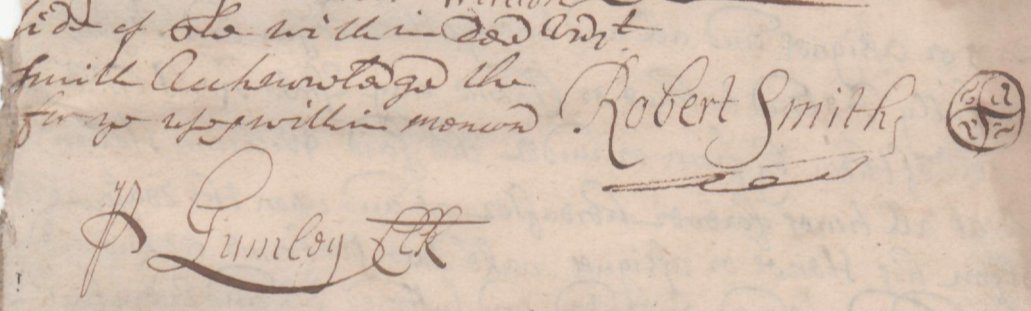 side of the within Deed Robt
Smith Acknowledge the
for ye uses within mencond
Robert Smith
P Lumley Clk